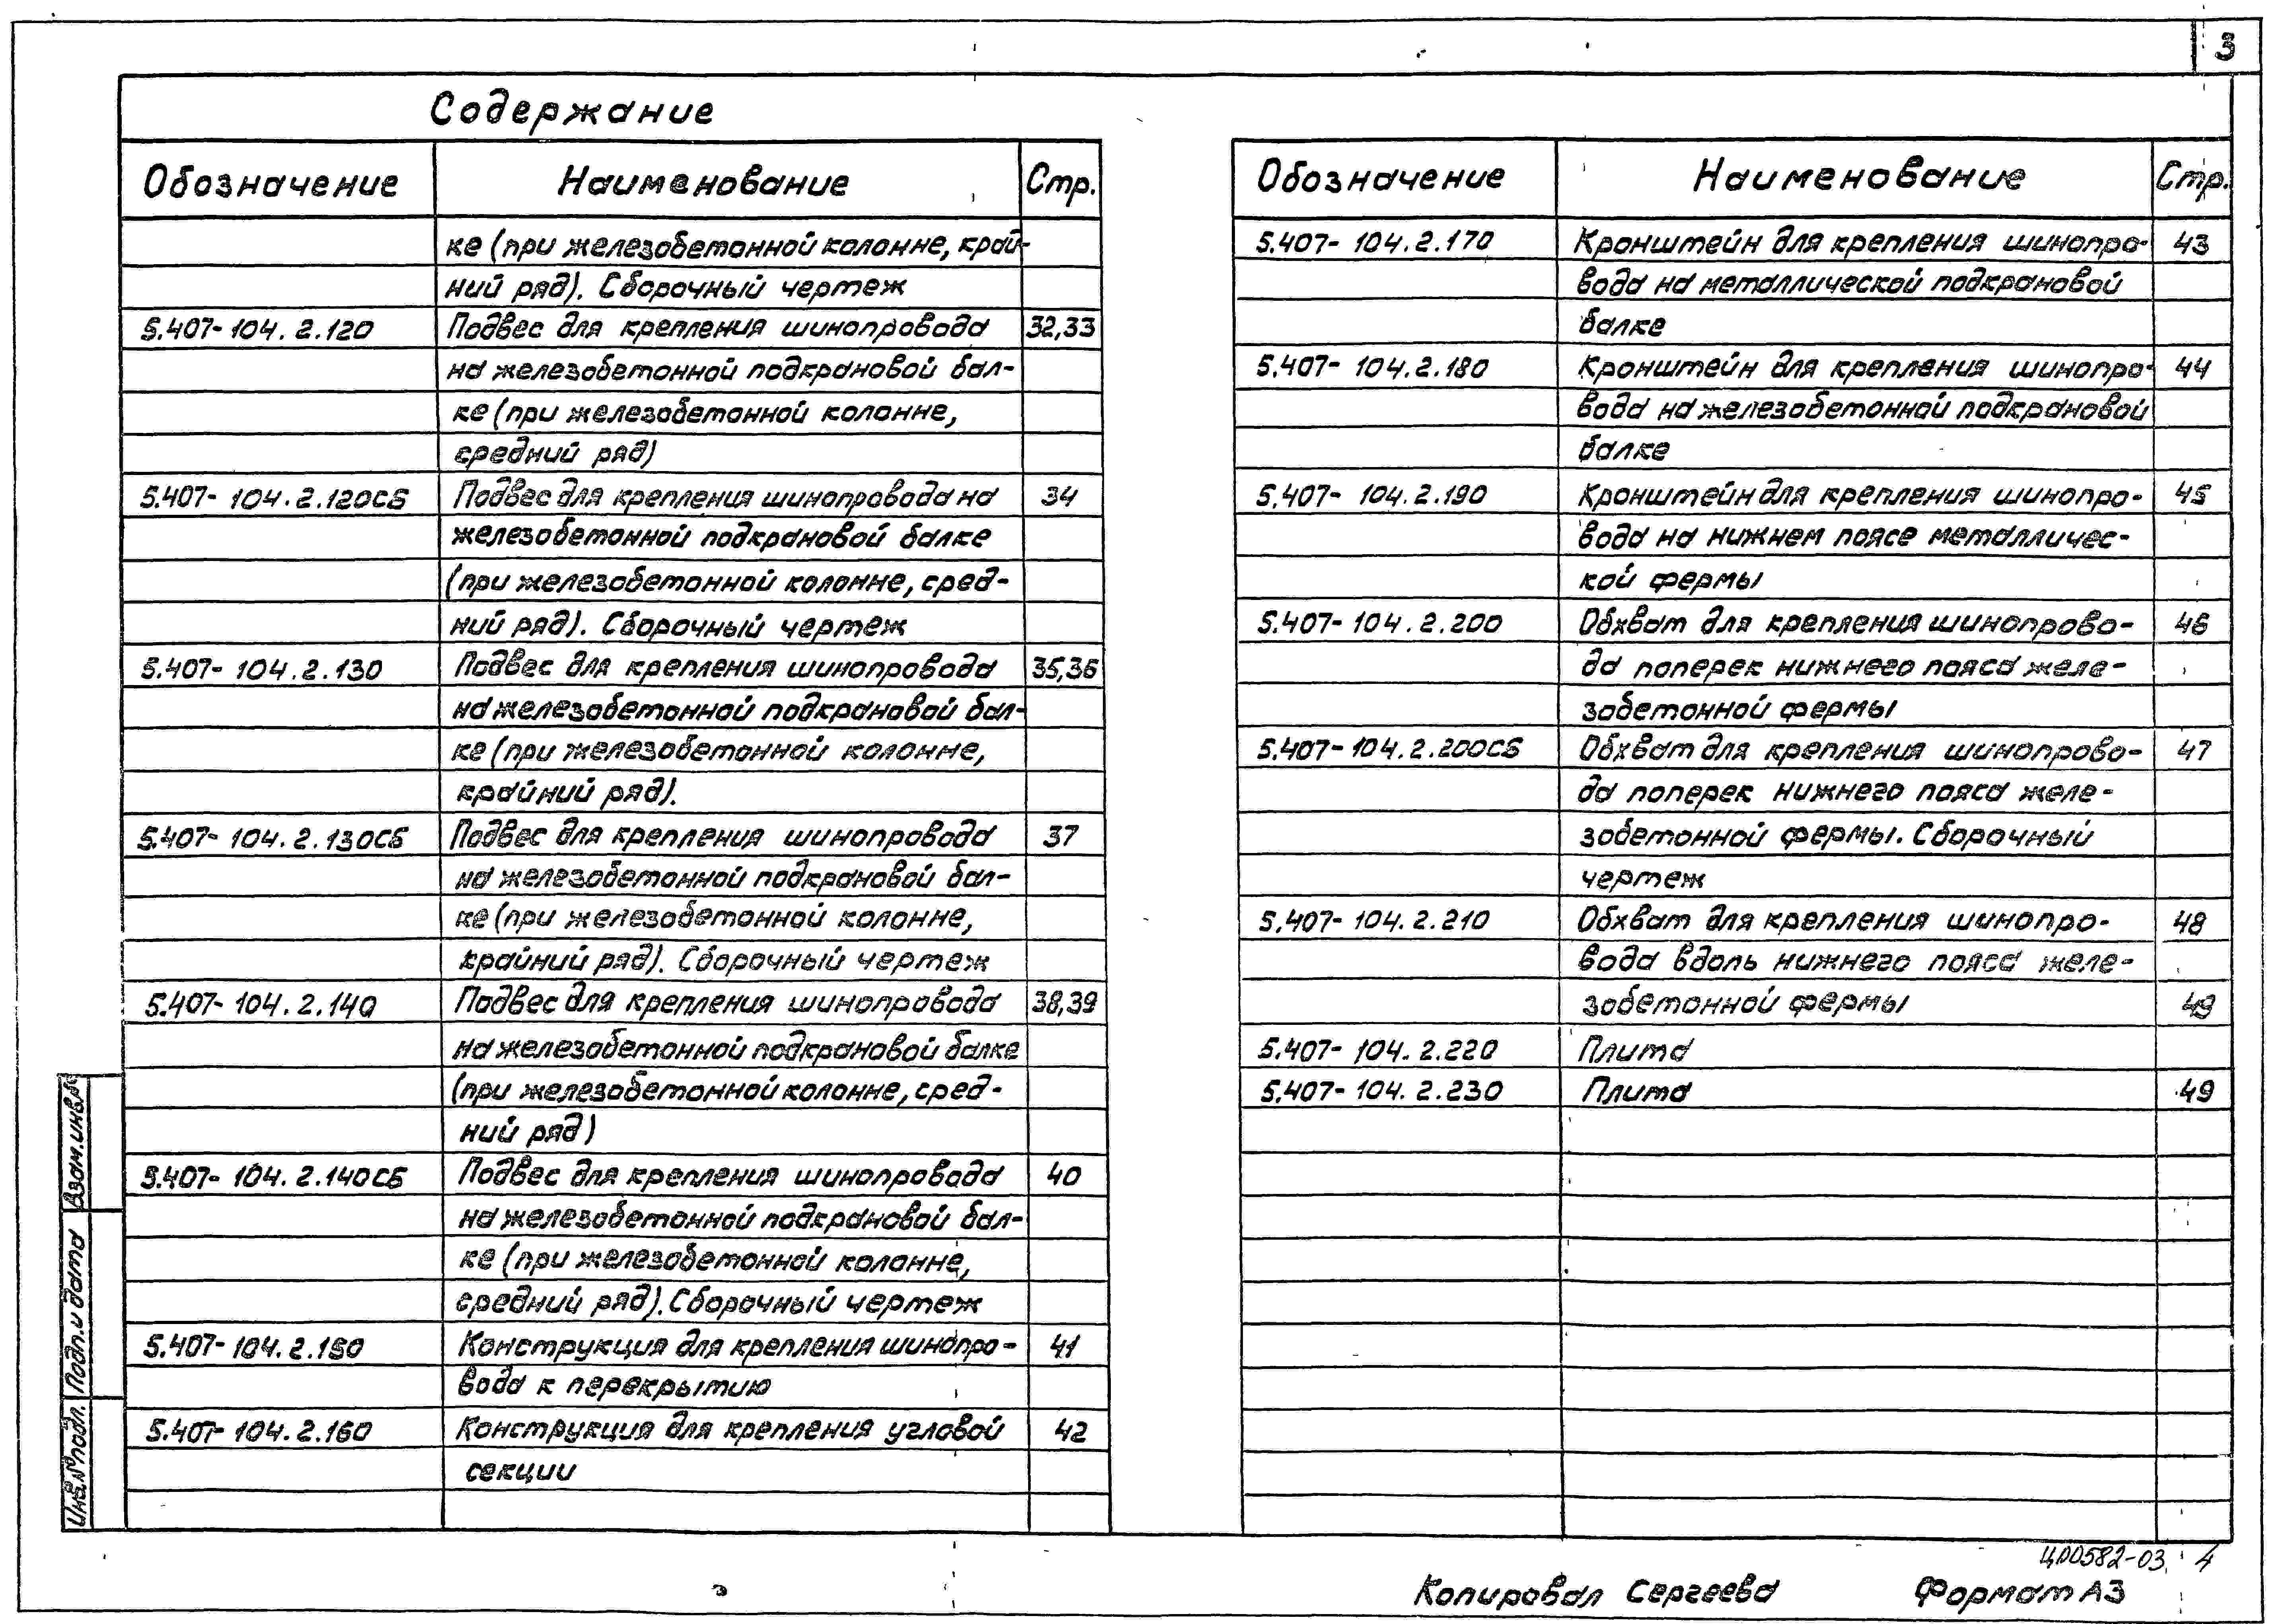 3
Содержание
Обозначение Наименование Стр.
ке (при железобетонной колонне, край-
ний ряд). Сборочный чертеж
5.407-104.2.120 Подвес для крепления шинопровода 32,33
на железобетонной подкрановой бал-
ке (при железобетонной колонне,
средний ряд)
5.407-104.2.120СБ Подвес для крепления шинопровода на 34
железобетонной подкрановой балке
(при железобетонной колонне, сред-
ний ряд). Сборочный чертеж
5.407-104.2.130 Подвес для крепления шинопровода 35,36
на железобетонной подкрановой бал-
ке (при железобетонной колонне,
крайний ряд).
5.407-104.2.130СБ Подвес для крепления шинопровода 37
на железобетонной подкрановой бал-
ке (при железобетонной колонне,
крайний ряд). Сборочный чертеж
5.407-104.2.140 Подвес для крепления шинопровода 38,39
на железобетонной подкрановой балке
(при железобетонной колонне, сред-
ний ряд)
5.407-104.2.140СБ Подвес для крепления шинопровода 40
на железобетонной подкрановой бал-
ке (при железобетонной колонне,
средний ряд). Сборочный чертеж
5.407-104.2.150 Конструкция для крепления шинопро- 41
вода к перекрытию
5.407-104.2.160 Конструкция для крепления угловой 42
секции
Обозначение Наименование Стр.
5.407-104.2.170 Кронштейн для крепления шинопро- 43
вода на металлической подкрановой
балке
5.407-104.2.180 Кронштейн для крепления шинопро- 44
вода на железобетонной подкрановой
балке
5.407-104.2.190 Кронштейн для крепления шинопро- 45
вода на нижнем поясе металличес-
кой фермы
5.407-104.2.200 Обхват для крепления шинопрово- 46
да поперек нижнего пояса желе-
зобетонной фермы
5.407-104.2.200СБ Обхват для крепления шинопрово- 47
да поперек нижнего пояса желе-
зобетонной фермы. Сборочный
чертеж
5.407-104.2.210 Обхват для крепления шинопро- 48
вода вдоль нижнего пояса желе-
зобетонной фермы 49
5.407-104.2.220 Плита
5.407-104.2.230 Плита 49
Взам.инв.№
Подп. и дата
Инв.№подл.
ЦП0582-03 4
Копировал Сергеева Формат А3